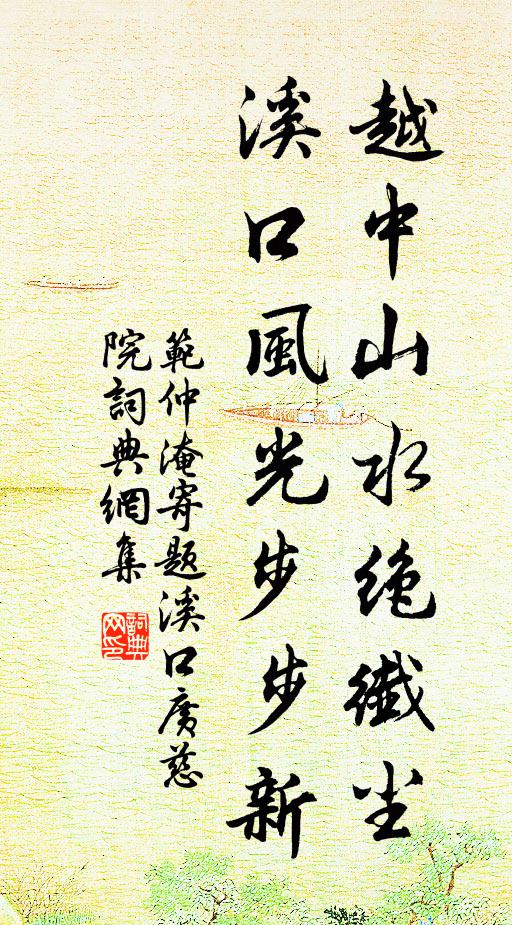 越中山水绝纖尘
溪口風光步步新
範仲淹寄题溪口廣慈
院詞典網集
詞典网印